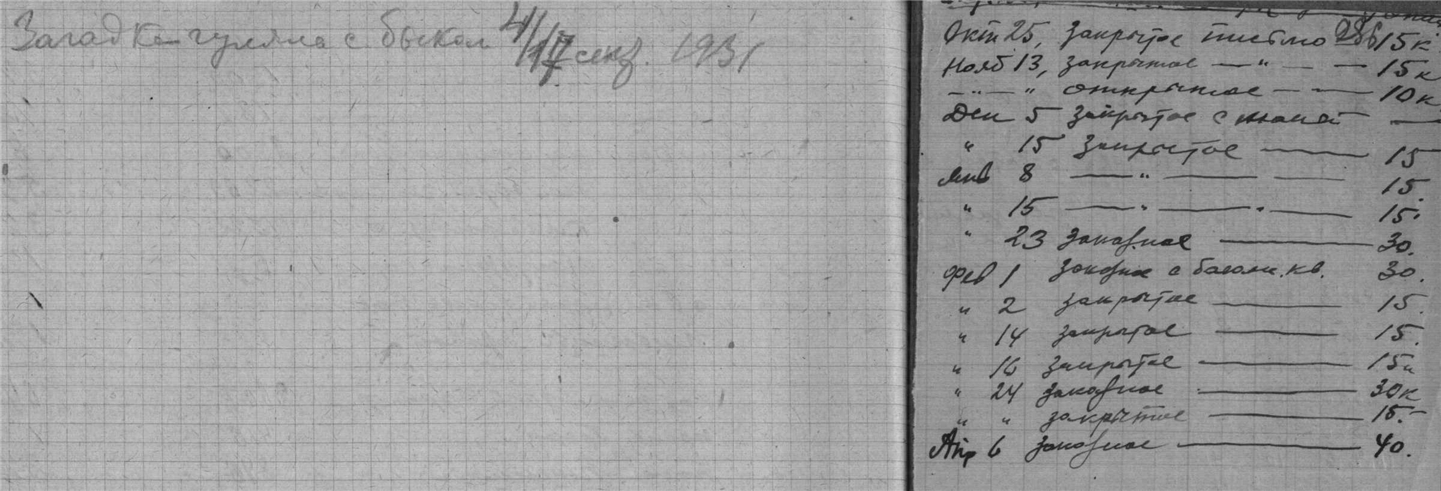 Загадка гуляла с быком 4/17 сент. 1931
Окт 25, закрытое письмо 15 к
Нояб 13, закрытое — " — — 15 к
— " — " открытое — — 10 к
Дек 5 закрытое с —
" 15 закрытое — 15
Янв 8 — " — — 15.
" 15 — " — " — 15.
" 23 заказное — 30.
Фев 1 заказное с кв. 30.
" 2 закрытое — 15.
" 14 закрытое — 15.
" 16 закрытое — 15 "
" 24 заказное — 30 к
" " закрытое — 15.–
Апр 6 заказное — 40.